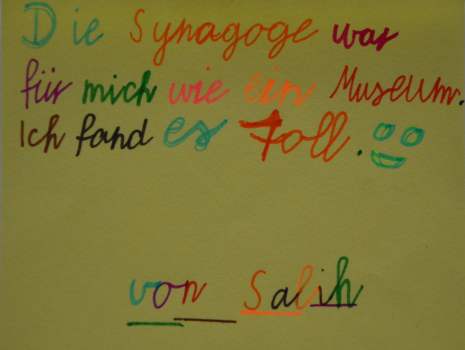 Die Synagoge war
für mich wie ein Museum.
Ich fand es Toll.
von Salih